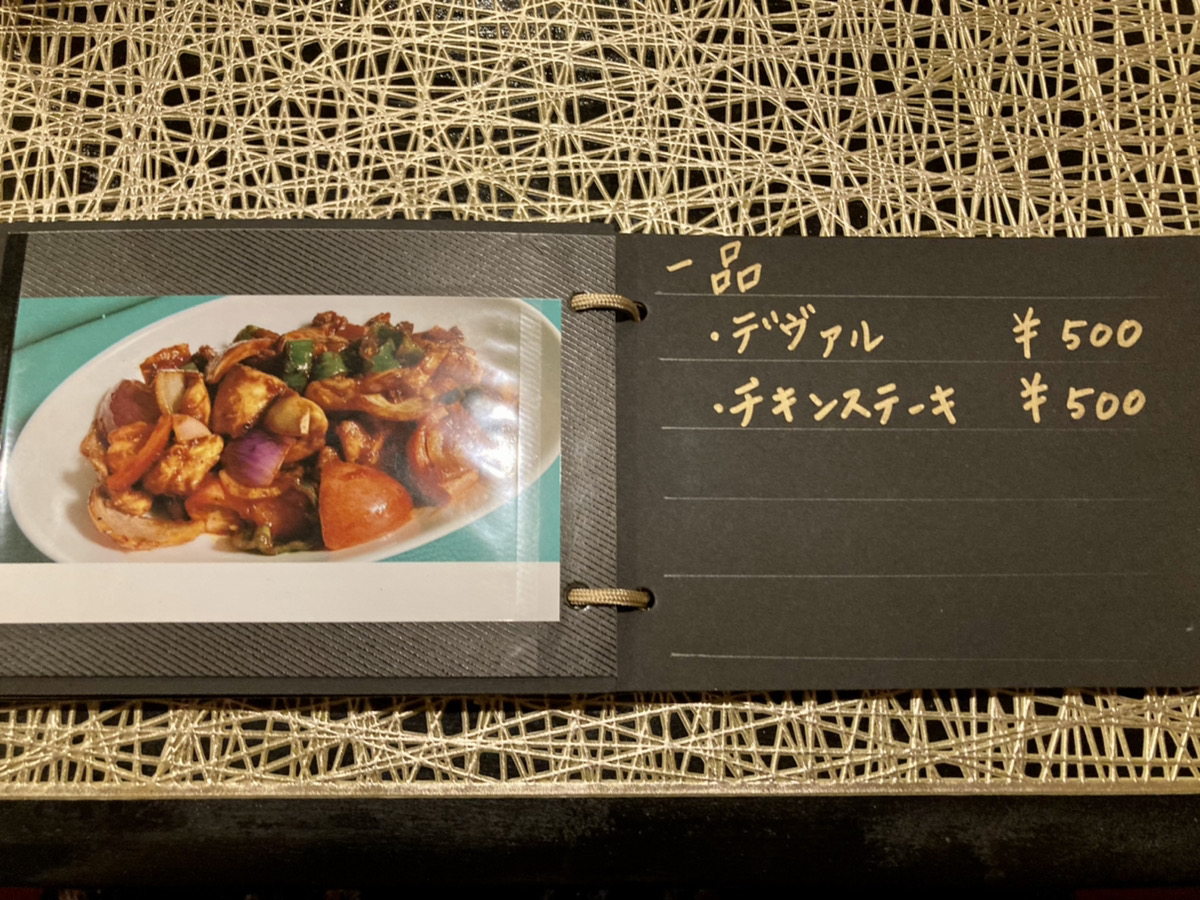 一品
・デヴァル ¥500
・チキンステーキ ¥500